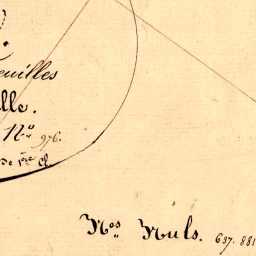 euilles
lle.
N.o 976.
De 1.re Cl.
N.os Nuls. 637. 881